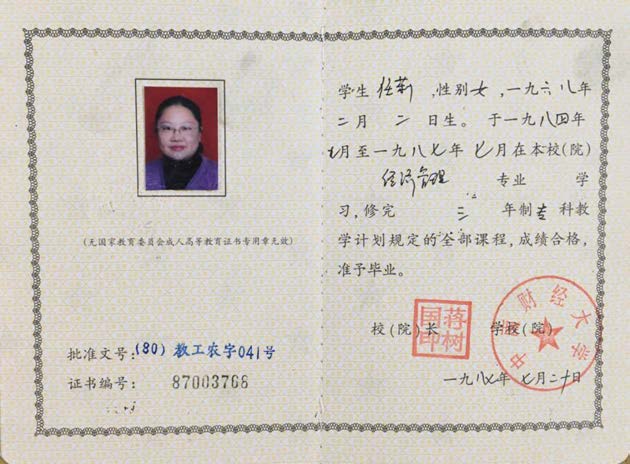 (无国家教育委员会成人高等教育证书专用章无效)
批准文号:(80)教工农字041号
证书编号: 87003768
学生 任莉 ,性别女,一九六八年
二月 二 日生。于一九八四年
七月至一九八七年 七月在本校(院)
经济管理 专业 学
习,修完 三 年制专科教
学计划规定的全部课程,成绩合格,
准予毕业。
校(院)长 蒋树国印 学校(院)
中 财经大学
一九八七年 七月二十日